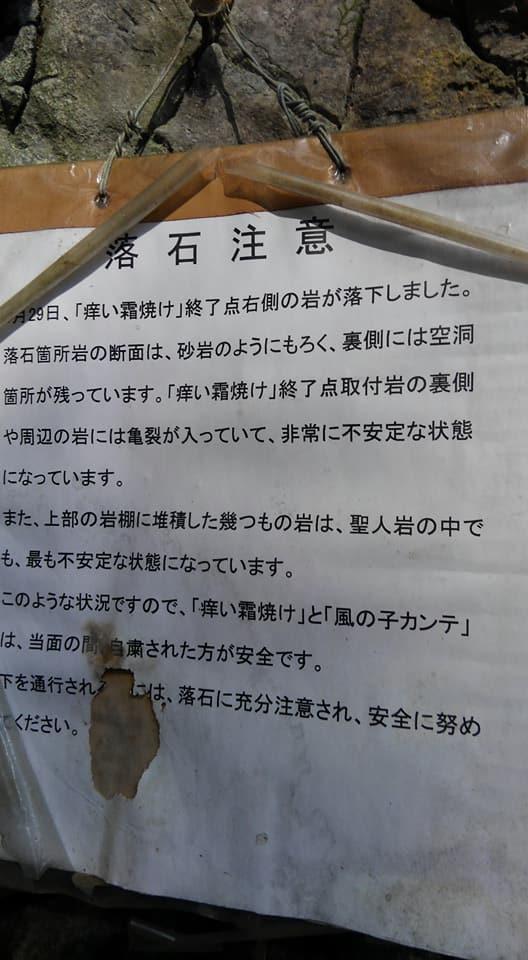 落石注意
月29日、「痒い霜焼け」終了点右側の岩が落下しました。
落石箇所岩の断面は、砂岩のようにもろく、裏側には空洞
箇所が残っています。「痒い霜焼け」終了点取付岩の裏側
や周辺の岩には亀裂が入っていて、非常に不安定な状態
になっています。
また、上部の岩棚に堆積した幾つもの岩は、聖人岩の中で
も、最も不安定な状態になっています。
このような状況ですので、「痒い霜焼け」と「風の子カンテ」
は、当面の間 自粛された方が安全です。
下を通行され には、落石に充分注意され、安全に努め
てください。